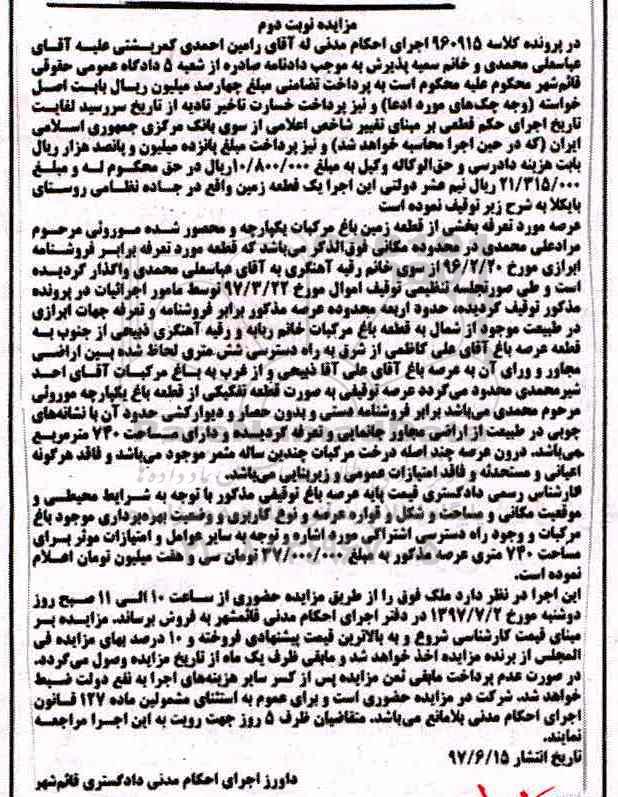 مزایده نوبت دوم
در پرونده کلاسه ۹۶۰۹۱۵ اجرای احکام مدنی له آقای رامین احمدی کمرپشتی علیه آقای
عباسعلی محمدی و خانم سمیه پذیرش به موجب دادنامه صادره از شعبه ۵ دادگاه عمومی حقوقی
قائم‌شهر محکوم علیه محکوم است به پرداخت تضامنی مبلغ چهارصد میلیون ریال بابت اصل
خواسته (وجه چک‌های مورد ادعا) و نیز پرداخت خسارت تاخیر تادیه از تاریخ سررسید لغایت
تاریخ اجرای حکم قطعی بر مبنای تغییر شاخص اعلامی از سوی بانک مرکزی جمهوری اسلامی
ایران (که در حین اجرا محاسبه خواهد شد) و نیز پرداخت مبلغ پانزده میلیون و پانصد هزار ریال
بابت هزینه دادرسی و حق‌الوکاله وکیل به مبلغ ۱۰/۸۰۰/۰۰۰ریال در حق محکوم له و مبلغ
۲۱/۳۱۵/۰۰۰ ریال نیم عشر دولتی این اجرا یک قطعه زمین واقع در جاده نظامی روستای
بایکلا به شرح زیر توقیف نموده است
عرصه مورد تعرفه بخشی از قطعه زمین باغ مرکبات یکپارچه و محصور شده موروثی مرحوم
مرادعلی محمدی در محدوده مکانی فوق‌الذکر می‌باشد که قطعه مورد تعرفه برابر فروشنامه
ابرازی مورخ ۹۶/۲/۲۰ از سوی خانم رقیه آهنگری به آقای عباسعلی محمدی واگذار گردیده
است و طی صورتجلسه تنظیمی توقیف اموال مورخ ۹۷/۳/۲۲ توسط مامور اجرائیات در پرونده
مذکور توقیف گردیده، حدود اربعه محدوده عرصه مذکور برابر فروشنامه و تعرفه جهات ابرازی
در طبیعت موجود از شمال به قطعه باغ مرکبات خانم ربابه و رقیه آهنگری ذبیحی از جنوب به
قطعه عرصه باغ آقای علی کاظمی از شرق به راه دسترسی شش متری لحاظ شده بین اراضی
مجاور و ورای آن به عرصه باغ آقای علی آقا ذبیحی و از غرب به باغ مرکبات آقای احد
شیرمحمدی محدود می‌گردد عرصه توقیفی به صورت قطعه تفکیکی از قطعه باغ یکپارچه موروثی
مرحوم محمدی می‌باشد برابر فروشنامه دستی و بدون حصار و دیوارکشی حدود آن با نشانه‌های
چوبی در طبیعت از اراضی مجاور جانمایی و تعرفه گردیده و دارای مساحت ۷۴۰ مترمربع
می‌باشد. درون عرصه چند اصله درخت مرکبات چندین ساله مثمر موجود می‌باشد و فاقد هرگونه
اعیانی و مستحدثه و فاقد امتیازات عمومی و زیربنایی می‌باشد.
کارشناس رسمی دادگستری قیمت پایه عرصه باغ توقیفی مذکور با توجه به شرایط محیطی و
موقعیت مکانی و مساحت و شکل و قواره عرصه و نوع کاربری و وضعیت بهره‌برداری موجود باغ
مرکبات و وجود راه دسترسی اشتراکی مورد اشاره و توجه به سایر عوامل و امتیازات موثر برای
مساحت ۷۴۰ متری عرصه مذکور به مبلغ ۳۷/۰۰۰/۰۰۰ تومان سی و هفت میلیون تومان اعلام
نموده است.
این اجرا در نظر دارد ملک فوق را از طریق مزایده حضوری از ساعت ۱۰ الی ۱۱ صبح روز
دوشنبه مورخ ۱۳۹۷/۷/۲ در دفتر اجرای احکام مدنی قائمشهر به فروش برساند. مزایده بر
مبنای قیمت کارشناسی شروع و به بالاترین قیمت پیشنهادی فروخته و ۱۰ درصد بهای مزایده فی
المجلس از برنده مزایده اخذ خواهد شد و مابقی ظرف یک ماه از تاریخ مزایده وصول می‌گردد.
در صورت عدم پرداخت مابقی ثمن مزایده پس از کسر سایر هزینه‌های اجرا به نفع دولت ضبط
خواهد شد. شرکت در مزایده حضوری است و برای عموم به استثنای مشمولین ماده ۱۲۷ قانون
اجرای احکام مدنی بلامانع می‌باشد. متقاضیان ظرف ۵ روز جهت رویت به این اجرا مراجعه
نمایند.
تاریخ انتشار ۹۷/۶/۱۵
داورز اجرای احکام مدنی دادگستری قائم‌شهر